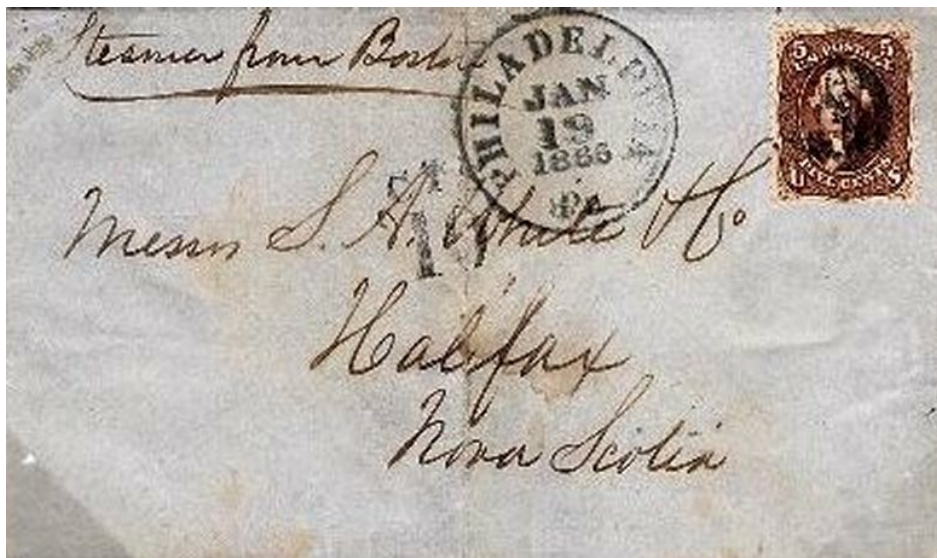 Steamer from Boston
PHILADELPHIA
JAN
19
1866
Pa
5 U.S. POSTAGE 5
U FIVE CENTS S
Messrs S. A. White & Co
10
Halifax
Nova Scotia